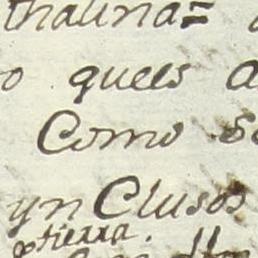 thalina=
o quees a
Como s
yn Clusos
tierra.